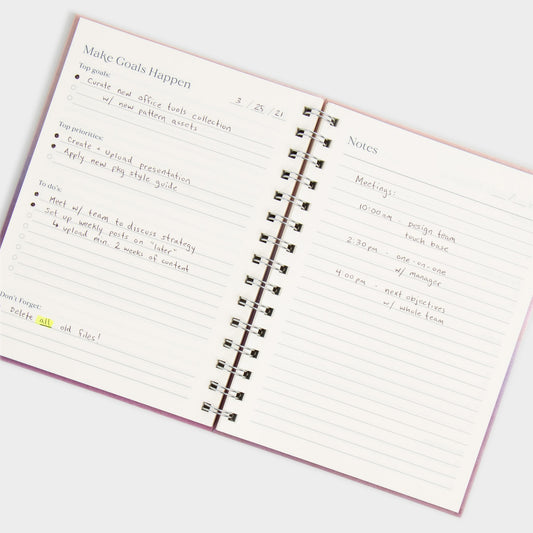 Make Goals Happen
Top goals:
3 / 25 / 21
Curate new office tools collection
w/ new pattern assets
Top priorities:
Create + upload presentation
Apply new pkg style guide
To do's:
Meet w/ team to discuss strategy
Set up weekly posts on "later"
↳ upload min. 2 weeks of content
Don't Forget:
Delete all old files!
Notes
Meetings:
10:00am - design team
touch base
2:30pm - one-on-one
w/ manager
4:00pm - next objectives
w/ whole team